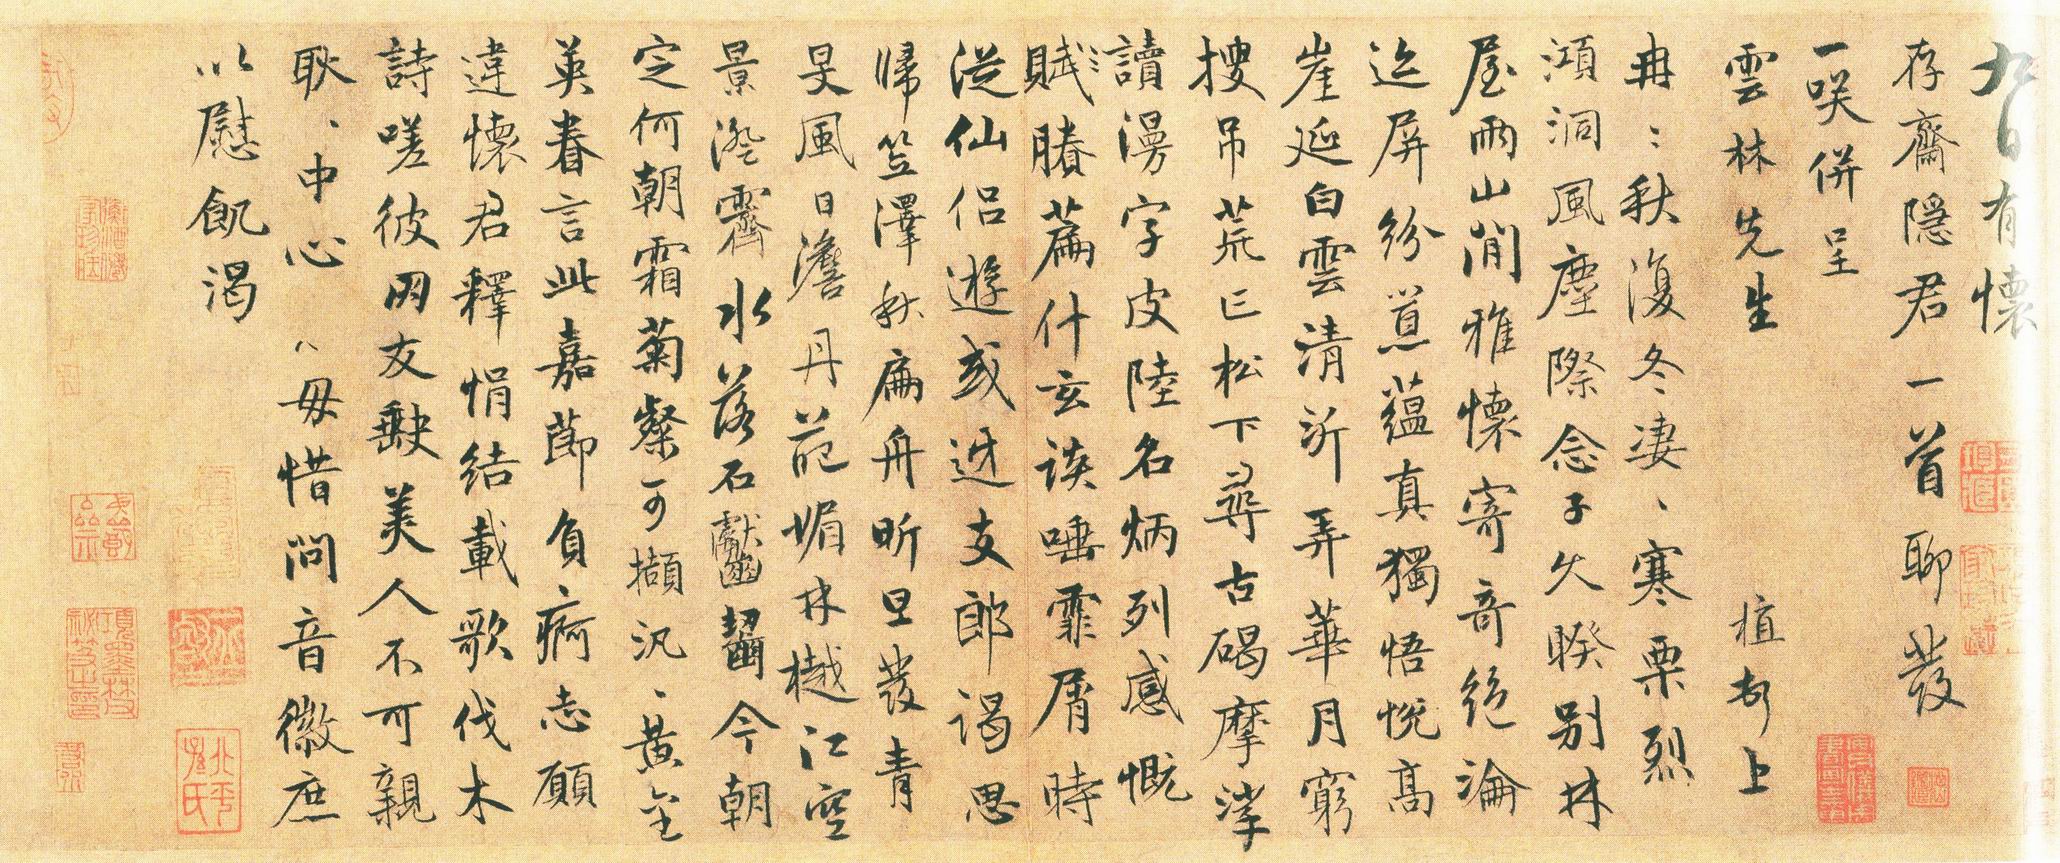 九日有懷
存齋隱君一首聊發
一咲併呈
雲林先生 植 上
冉〻秋復冬淒〻寒栗烈
澒洞風塵際念子久暌别林
屋兩山間雅懷寄奇絶淪
迄屏紛囂蘊真獨悟悅高
崖延白雲清沂弄華月窮
搜吊荒亡松下尋古碣摩挲
讀漫字皮陸名炳列感慨
賦賸篇什玄談唾霏屑時
從仙侶遊或迓支郎謁思
歸笠澤秋扁舟昕旦發青
旻風日澹丹葩媚林樾江空
景澄霽水落石巘齧今朝
定何朝霜菊粲可擷汎〻黃金
英眷言此嘉節負痾志願
違懷君釋悁結載歌伐木
詩嗟彼罔友缺美人不可親
耿〻中心〻毋惜問音徽庶
以慰飢渴
北平孫氏